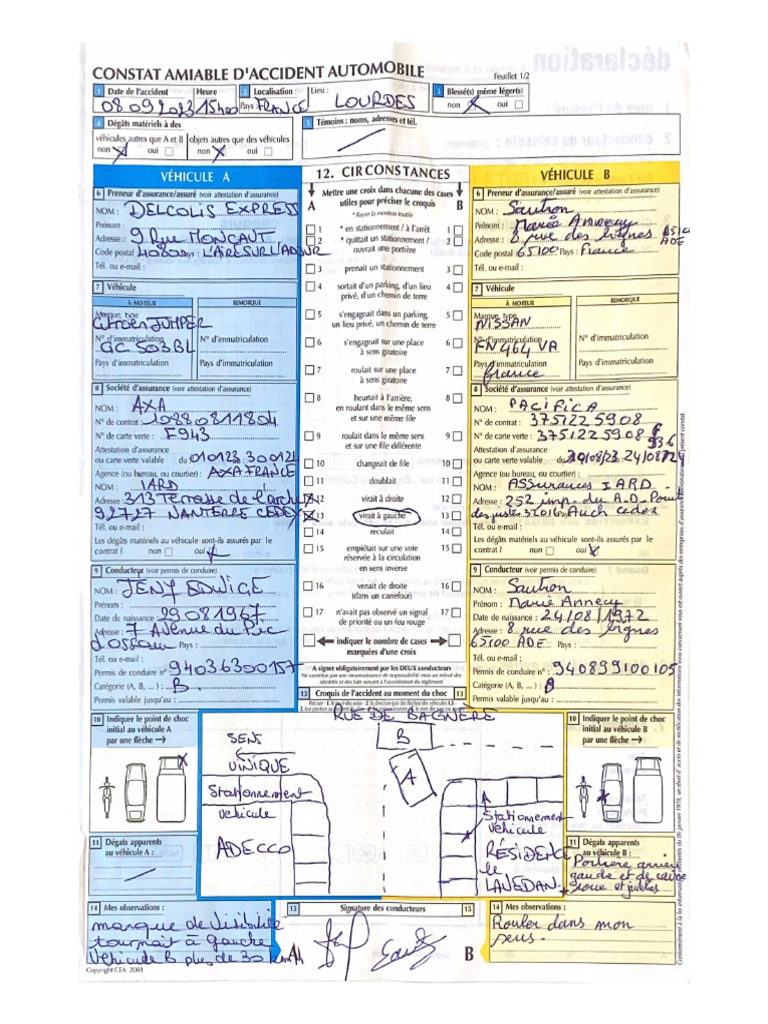 CONSTAT AMIABLE D'ACCIDENT AUTOMOBILE
Feuillet 1/2
1 Date de l'accident Heure
08.09.2023 15H00
2 Localisation : Lieu :
Pays : FRANCE LOURDES
3 Blessé(s) même léger(s)
non X oui
4 Dégâts matériels à des
véhicules autres que A et B objets autres que des véhicules
non X oui non X oui
5 Témoins : noms, adresses et tél.
VÉHICULE A
6 Preneur d'assurance/assuré (voir attestation d'assurance)
NOM : DELCOLIS EXPRESS
Prénom :
Adresse : 9 Rue MONCAUT
Code postal : 40800 Pays : L'AIRE SUR L'ADOUR
Tél. ou e-mail :
7 Véhicule
À MOTEUR REMORQUE
Marque, type
Citroën JUMPER
N° d'immatriculation N° d'immatriculation
GC 503 BL
Pays d'immatriculation Pays d'immatriculation
8 Société d'assurance (voir attestation d'assurance)
NOM : AXA
N° de contrat : 10880811804
N° de carte verte : F943
Attestation d'assurance
ou carte verte valable du 010123 300124
Agence (ou bureau, ou courtier) : AXA FRANCE
NOM : IARD
Adresse : 313 Terrasse de l'arche
92727 NANTERRE CEDEX
Tél. ou e-mail :
Les dégâts matériels au véhicule sont-ils assurés par le
contrat ? non oui X
9 Conducteur (voir permis de conduire)
NOM : JENY EDWIGE
Prénom :
Date de naissance : 29.08.1967
Adresse : 7 Avenue du Pic
d'ossau Pays :
Tél. ou e-mail :
Permis de conduire n° : 94036300157
Catégorie (A, B, ...) : B
Permis valable jusqu'au :
12. CIRCONSTANCES
Mettre une croix dans chacune des cases
A utiles pour préciser le croquis B
* Rayer la mention inutile
1 * en stationnement / à l'arrêt 1
2 * quittait un stationnement / 2
ouvrait une portière
3 prenait un stationnement 3
4 sortait d'un parking, d'un lieu 4
privé, d'un chemin de terre
5 s'engageait dans un parking, 5
un lieu privé, un chemin de terre
6 s'engageait sur une place 6
à sens giratoire
7 roulait sur une place 7
à sens giratoire
8 heurtait à l'arrière, 8
en roulant dans le même sens
et sur une même file
9 roulait dans le même sens 9
et sur une file différente
10 changeait de file 10
11 doublait 11
X 12 virait à droite 12
X 13 virait à gauche 13
14 reculait 14
15 empiétait sur une voie 15
réservée à la circulation
en sens inverse
16 venait de droite 16
(dans un carrefour)
17 n'avait pas observé un signal 17
de priorité ou un feu rouge
indiquer le nombre de cases
marquées d'une croix
A signer obligatoirement par les DEUX conducteurs
Ne constitue pas une reconnaissance de responsabilité mais un relevé des
identités et des faits servant à l'accélération du règlement
VÉHICULE B
6 Preneur d'assurance/assuré (voir attestation d'assurance)
NOM : Sautron
Prénom : Marie Annecy
Adresse : 8 rue des vignes
ADE
Code postal : 65100 Pays : France
Tél. ou e-mail :
7 Véhicule
À MOTEUR REMORQUE
Marque, type
NISSAN
N° d'immatriculation N° d'immatriculation
FN 464 VA
Pays d'immatriculation Pays d'immatriculation
france
8 Société d'assurance (voir attestation d'assurance)
NOM : PACIFICA
N° de contrat : 3751225908
N° de carte verte : 3751225908
Attestation d'assurance
ou carte verte valable
Agence (ou bureau, ou courtier) :
NOM : ASSURANCES IARD
Adresse : 252 imp. du
32016 Auch cedex
Tél. ou e-mail :
Les dégâts matériels au véhicule sont-ils assurés par le
contrat ? non oui X
9 Conducteur (voir permis de conduire)
NOM : Sautron
Prénom : Marie Annecy
Date de naissance : 24/08/1972
Adresse : 8 rue des vignes
65100 ADE Pays :
Tél. ou e-mail :
Permis de conduire n° : 940839100105
Catégorie (A, B, ...) : B
Permis valable jusqu'au :
10 Indiquer le point de choc
initial au véhicule A
par une flèche
X
11 Dégats apparents
au véhicule A :
13 Croquis de l'accident au moment du choc 13
RUE DE BAGNÈRE
SENS
UNIQUE
Stationnement
véhicule
ADECCO
B
A
Stationnement
véhicule
RÉSIDENCE
le
LAVEDAN
10 Indiquer le point de choc
initial au véhicule B
par une flèche
11 Dégâts apparents
au véhicule B :
Portière arrière
gauche et
roue et
14 Mes observations :
manque de visibilité
tournait à gauche
Véhicule B plus de 30 km/h
15 Signature des conducteurs 15
A B
14 Mes observations :
Rouler dans mon
sens.
Copyright CEA 2001